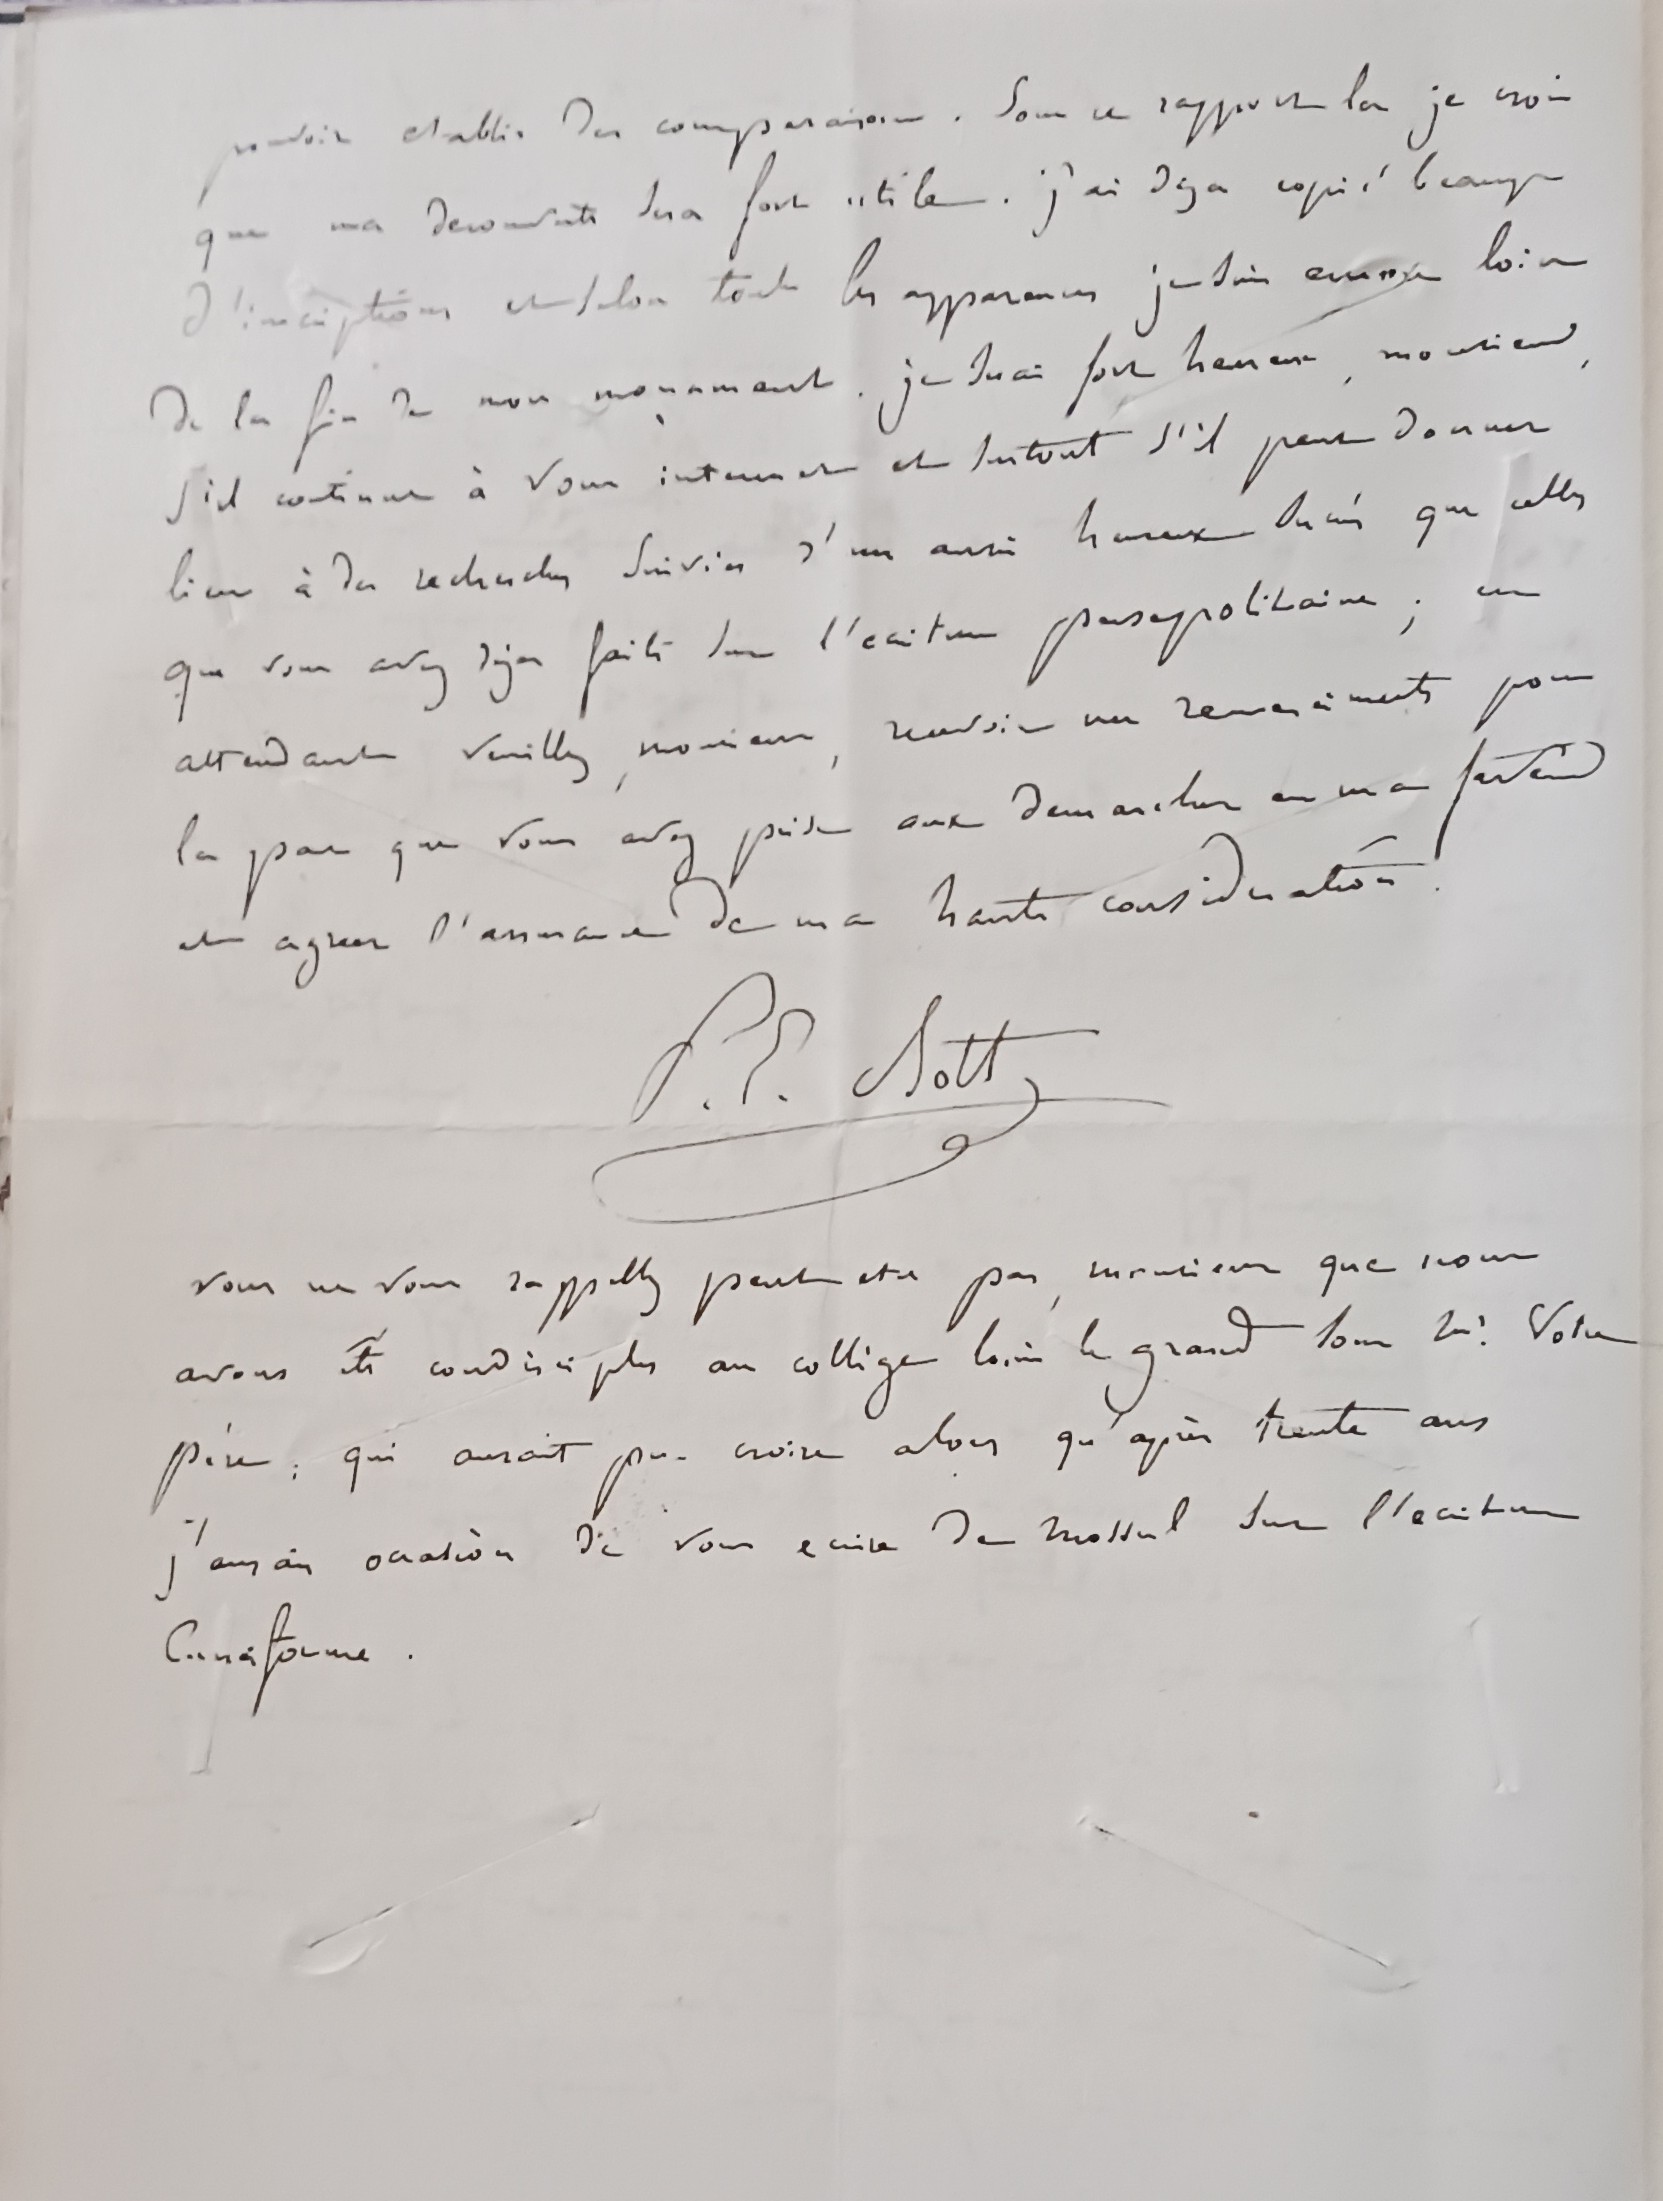 pouvoir etablir des comparaisons. Sous ce rapport la je crois
que ma decouverte sera fort utile. j'ai deja copié beaucoup
d'inscriptions et selon toutes les apparences je suis encore loin
de la fin de mon monument. je serai fort heureux, monsieur,
s'il continue à vous interesser et surtout s'il peut donner
lieu à des recherches suivies d'un aussi heureux succés que celles
que vous avez deja faites sur l'ecriture persepolitaine; en
attendant veuillez, monsieur, recevoir mes remerciments pour
la part que vous avez prise aux demarches en ma faveur
et agreer l'assurance de ma haute consideration.
P. E. Botta
vous ne vous rappellez peut etre pas, monsieur que nous
avons été condisciples au collège louis le grand sous Mr. Votre
père; qui aurait pu croire alors qu'après trente ans
j'aurais occasion de vous ecrire de Mossul sur l'ecriture
Cuneiforme.